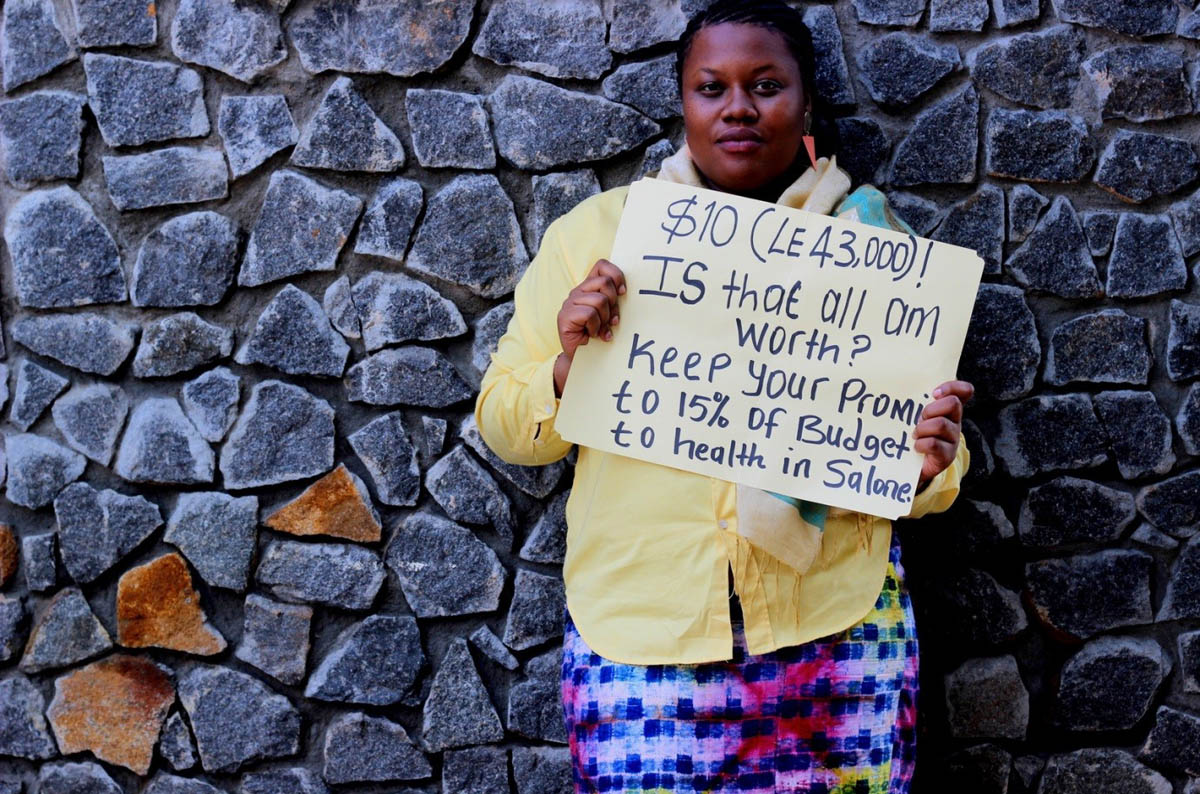 $10 (LE43,000)!
IS that all am
worth?
Keep your Promi
to 15% of Budget
to health in Salone.